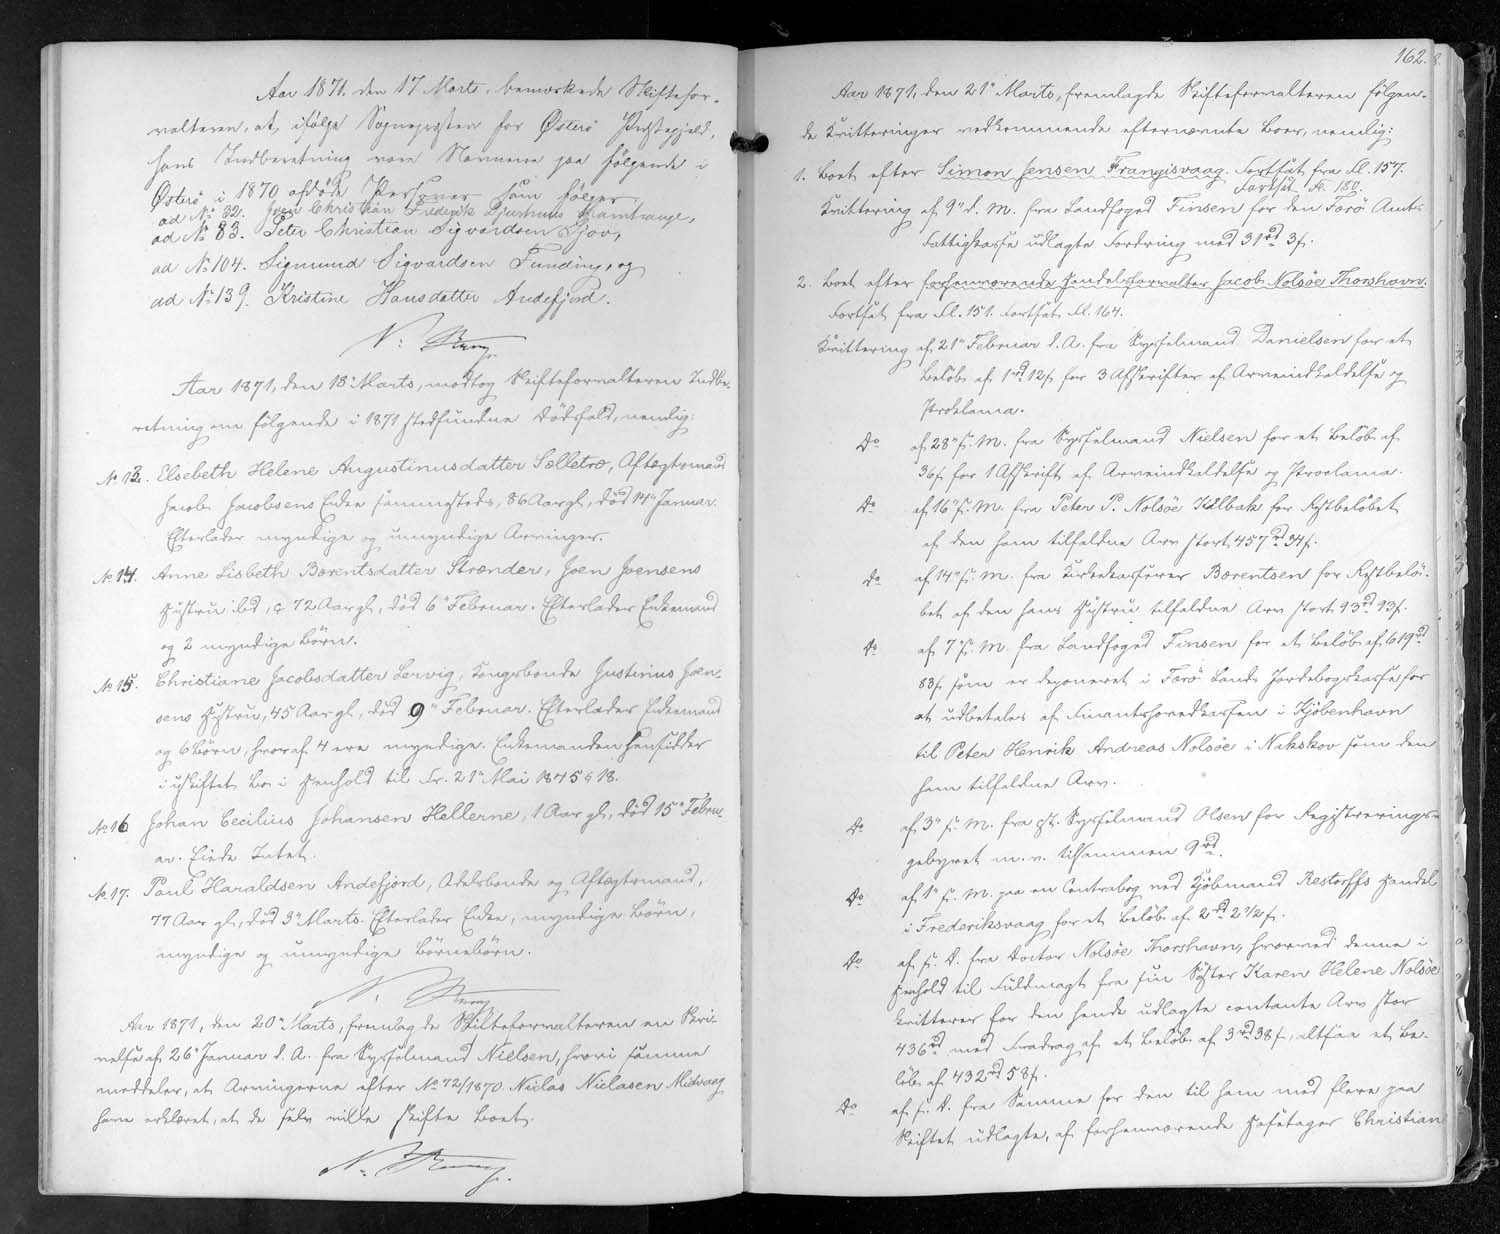 Aar 1871, den 17 Marts, bemærkede Skiftefor-
valteren, at ifølge Sognepræsten for Østerø Præstegjeld,
hans Indberetning vare Navnene paa følgende i
Østerø i 1870 afdøde Personer som følger
ad No 32. Joen Christian Frederik Djurhuus
ad No 83. Peter Christian Sigvardsen Gjov,
ad No 104. Sigmund Sigvardsen Funding, og
ad No 139. Kristine Hansdatter Andefjord.
Aar 1871, den 18' Marts, modtog Skifteforvalteren Indbe-
retning om følgende i 1871 stedfundne Dødsfald, nemlig:
No 13. Elsebeth Helene Augustinusdatter Selletræ, Aftægtsmand
Jacob Jacobsens Enke sammesteds, 86 Aar gl., død 14' Januar.
Efterlader myndige og umyndige Arvinger.
No 14. Anne Lisbeth Barentsdatter Strænder, Joen Joensens
Hustru ibd, 72 Aar gl., død 6' Februar. Efterlader Enkemand
og 2 myndige Børn.
No 15. Christiane Jacobsdatter Lervig, Kongsbonde Justinus Joen-
sens Hustru, 45 Aar gl., død 9' Februar. Efterlader Enkemand
og 6 Børn, hvoraf 4 ere myndige. Enkemanden hensidder
i uskiftet Bo i Henhold til Fr. 21' Mai 1845 § 18.
No 16 Johan Cecilius Johansen Hellerne, 1 Aar gl., død 15' Febru-
ar. Eiede Intet.
No 17. Paul Haraldsen Andefjord, Odelsbonde og Aftægtsmand,
77 Aar gl., død 3' Marts. Efterlader Enke, myndige Børn,
myndige og umyndige Børnebørn.
Aar 1871, den 20' Marts, fremlagde Skifteforvalteren en Skri-
velse af 26' Januar d. A. fra Sysselmand Nielsen, hvori samme
meddeler, at Arvingerne efter No 72/1870 Niclas Nielasen Midvaag
have erklæret, at de selv ville skifte Boet.
162.
Aar 1871, den 21' Marts, fremlagde Skifteforvalteren følgen-
de Kvitteringer vedkommende efternævnte Boer, nemlig:
1. Boet efter Simon Jensen Frangisvaag. Fortsat fra Fl. 157.
Fortsat Fl. 180.
Kvittering af 9' d. M. fra Landfoged Finsen for den Færø Amts
Fattigkasse udlagte Fordring med 31 rd 3 s.
2. Boet efter forhenværende Handelsforvalter Jacob Nolsøe Thorshavn.
Fortsat fra Fl. 151. Fortsat Fl. 164.
Kvittering af 21' Februar d. A. fra Sysselmand Danielsen for et
Beløb af 1 rd 12 s for 3 Afskrifter af Arveindkaldelse og
Proklama.
Do af 28' s. M. fra Sysselmand Nielsen for et Beløb af
36 s for 1 Afskrift af Arveindkaldelse og Proclama.
Do af 16' s. M. fra Peter P. Nolsøe Kulbak for Restbeløbet
af den ham tilfaldne Arv stort 457 rd 34 s.
Do af 14' s. M. fra Kirkekasserer Barentsen for Restbelø-
bet af den hans Hustru tilfaldne Arv stort 93 rd 93 s.
Do af 7' s. M. fra Landfoged Finsen for et Beløb af 619 rd
83 s som er deponeret i Færø Lands Jordebogskasse for
at udbetales af Finantshovedkassen i Kjøbenhavn
til Peter Henrik Andreas Nolsøe i Nakskov som den
ham tilfaldne Arv.
Do af 3' s. M. fra cst. Sysselmand Olsen for Registrerings-
gebyret m. v. tilsammen 9 rd.
Do af 1' s. M. paa en Contrabog ved Kjøbmand Restorffs Handel
i Frederiksvaag for et Beløb af 2 rd 2 1/2 s.
Do af s. D. fra Doctor Nolsøe Thorshavn, hvorved denne i
Henhold til Fuldmagt fra sin Søster Karen Helene Nolsøe
kvitterer for den hende udlagte contante Arv stor
436 rd med Fradrag af et Beløb af 3 rd 38 s, altsaa et Be-
løb af 432 rd 58 s.
Do af s. D. fra Samme for den til ham med flere paa
Skiftet udlagte, af forhenværende Christian